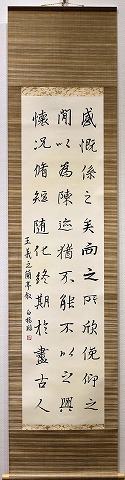 感慨係之矣向之所欣俛仰之
閒以為陳迹猶不能不以之興
懷況脩短隨化終期於盡古人
王羲之蘭亭敘